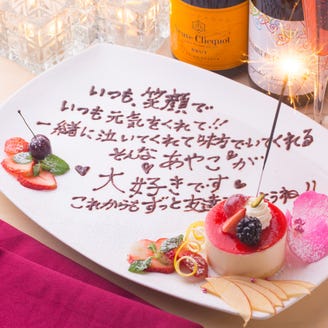 Veuve Clicquot
BRUT
いつも、笑顔で
いつも元気をくれて!!
一緒に泣いてくれて味方でいてくれる
そんなあやこが
大好きです
これからもずっと友達